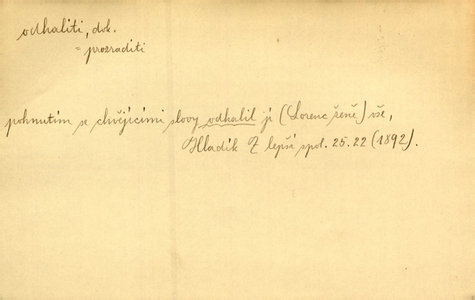 odhaliti, dok.
= prozraditi
pohnutím se chvějícími slovy odhalil jí (Lorenc ženě) vše,
Hladík Z lepší spol. 25.22 (1892).